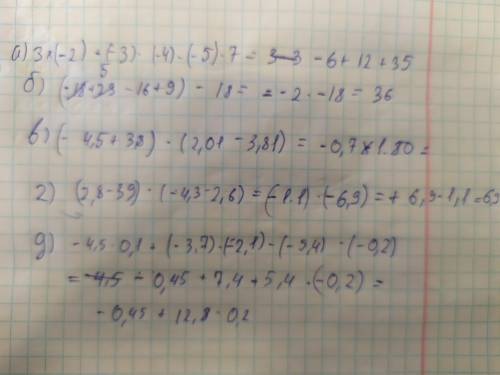 а) 3·(-2) + (-3)·(-4)·(-5)·7 = 3-3 - 6 + 12 + 35
б) (-18+23 - 16 + 9) - 18 = = -2 · -18 = 36
в) (- 4,5 + 3,8) · (2,01 - 3,81) = -0,7 * 1.80 =
г) (2,8 - 3,9) · (-4,3 - 2,6) = (-1.1) · (-6,9) = + 6,9 · 1,1 = 6,9
д) -4,5 · 0,1 + (-3,7) · (-2,1) - (-5,4) · (-0,2)
= -4,5 - 0,45 + 7,4 + 5,4 · (-0,2) =
- 0,45 + 12,8 · 0,2